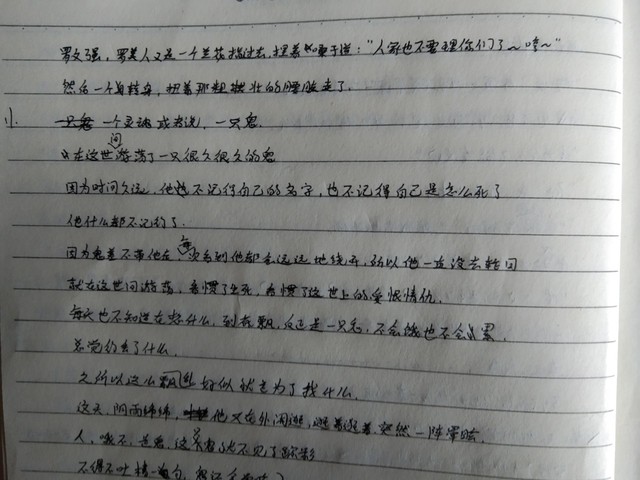 罗文强，罗美人又是一个兰花指过去，捏着嗓子道："人家也不要理你们了～哼～"
然后一个身转身，扭着那粗壮的腰肢走了．
小． 一只鬼 一个灵魂或者说，一只鬼．
在这世间游荡了一只很久很久的鬼
因为时间久远，他不记得自己的名字，也不记得自己是怎么死了
他什么都不记得了．
因为鬼差不带他在每次看到他都会远远地绕开，所以他一直没去轮回
就在这世间游荡，看惯了生死，看惯了这世上的爱恨情仇．
每天也不知道在想什么，到处飘，反正是一只鬼，不会饿也不会累．
总觉的丢了什么．
之所以这么飘 好似就是为了找什么．
这天，阴雨绵绵，他又在外闲逛，逛着逛着，突然一阵晕眩
人，哦不，是鬼，这鬼就不见了踪影
不得不吐槽一句，